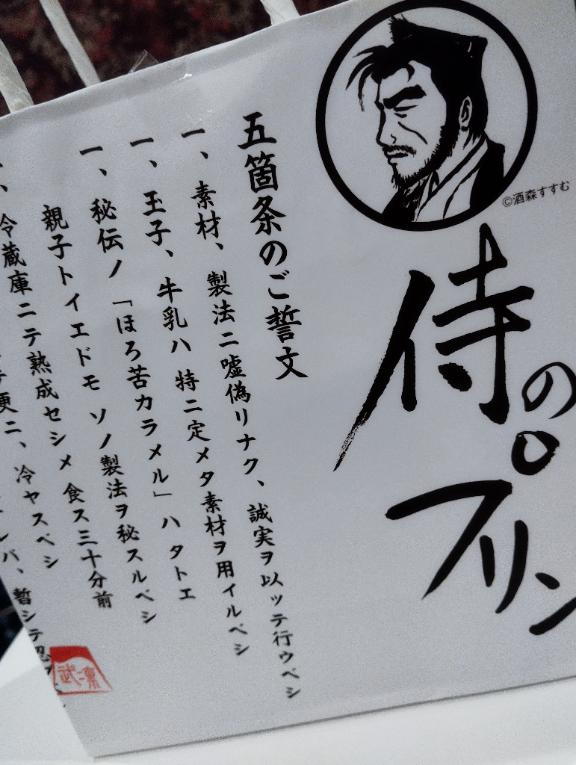 ©酒森すすむ
侍のプリン
五箇条のご誓文
一、素材、製法ニ嘘偽リナク、誠実ヲ以ッテ行ウベシ
一、玉子、牛乳ハ 特ニ定メタ素材ヲ用イルベシ
一、秘伝ノ「ほろ苦カラメル」ハ タトエ
親子トイエドモ ソノ製法ヲ秘スルベシ
一、冷蔵庫ニテ熟成セシメ 食ス三十分前
ニ、冷ヤスベシ
バ、暫シテ